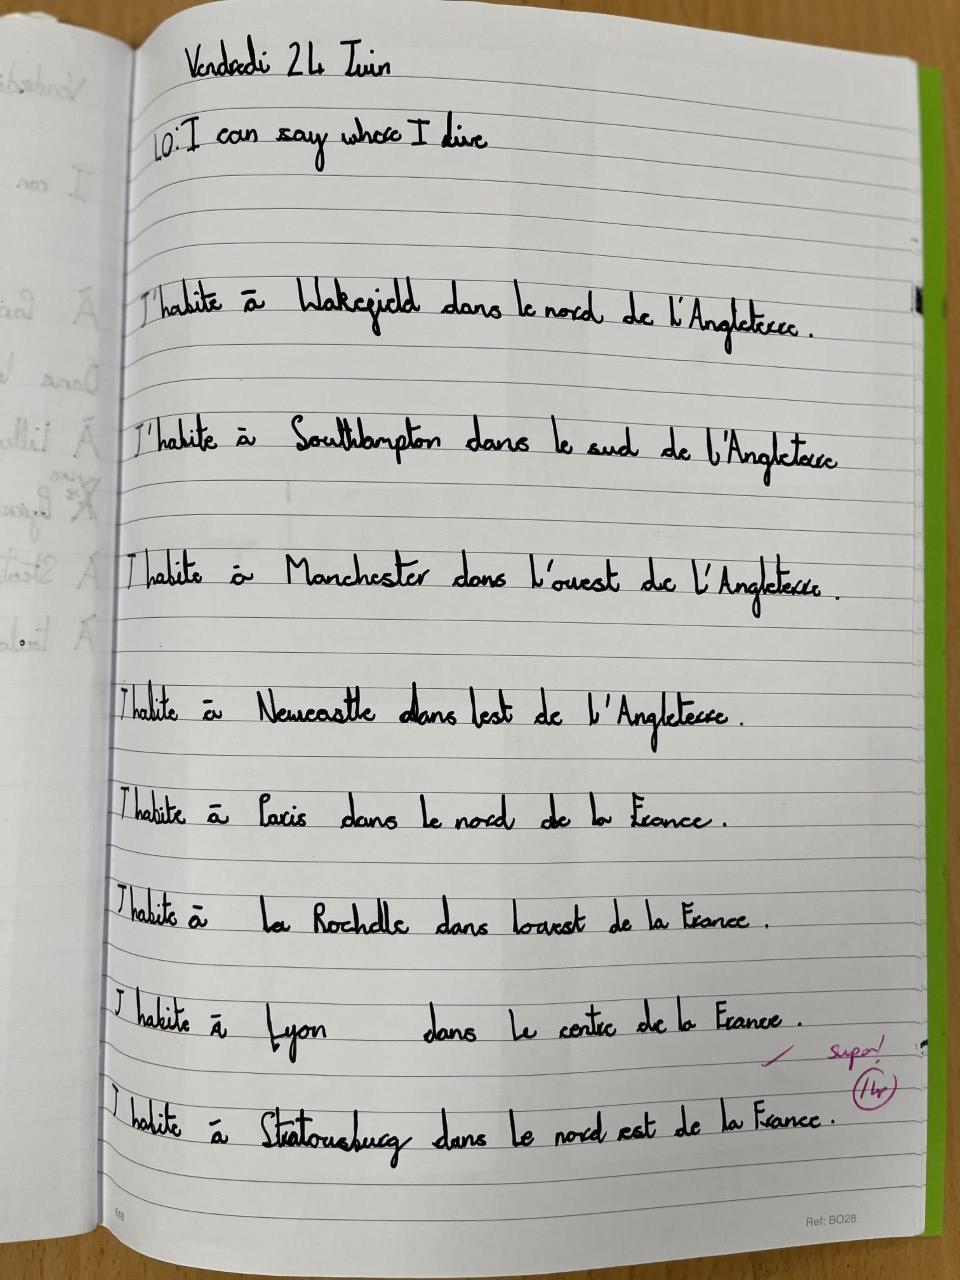 Vendredi 24 Juin
LO: I can say where I live
J'habite à Wakefield dans le nord de l'Angleterre.
J'habite à Southampton dans le sud de l'Angleterre
J habite à Manchester dans l'ouest de l'Angleterre.
J habite à Newcastle dans lest de l'Angleterre.
J habite à Paris dans le nord de la France.
J habite à La Rochelle dans louest de la France.
J habite à Lyon dans le centre de la France.
super!
J habite à Stratousburg dans le nord est de la France.
618
Ref: BO28